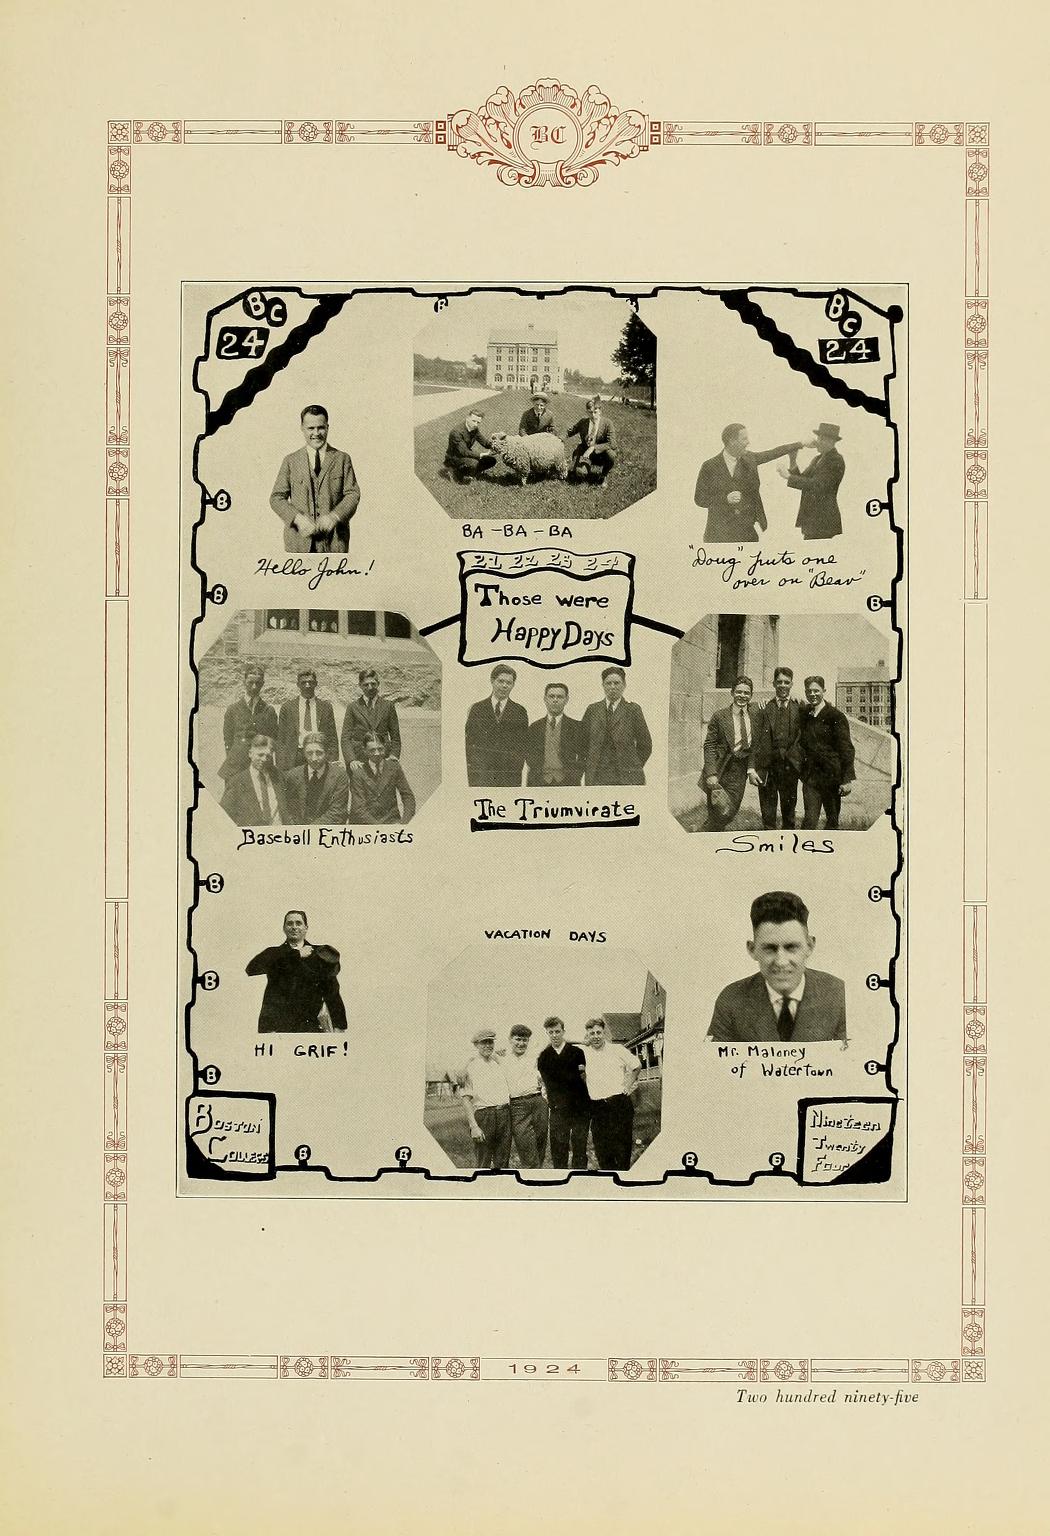 BC
BC
24
BC
24
BA-BA-BA
Hello John!
"Doug" puts one
over on "Beav"
21 22 23 24
Those were
Happy Days
Baseball Enthusiasts
The Triumvirate
Smiles
VACATION DAYS
HI GRIF!
Mr. Maloney
of Watertown
Boston
College
Nineteen
Twenty
Four
1924
Two hundred ninety-five